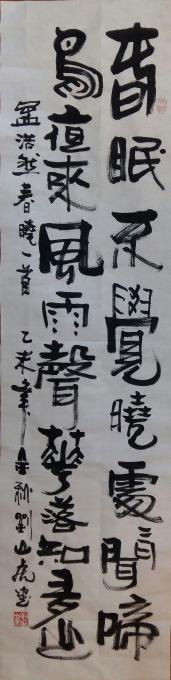 春眠不覺曉處聞啼
鳥夜來風雨聲花落知多少
孟浩然春曉一首 乙未年